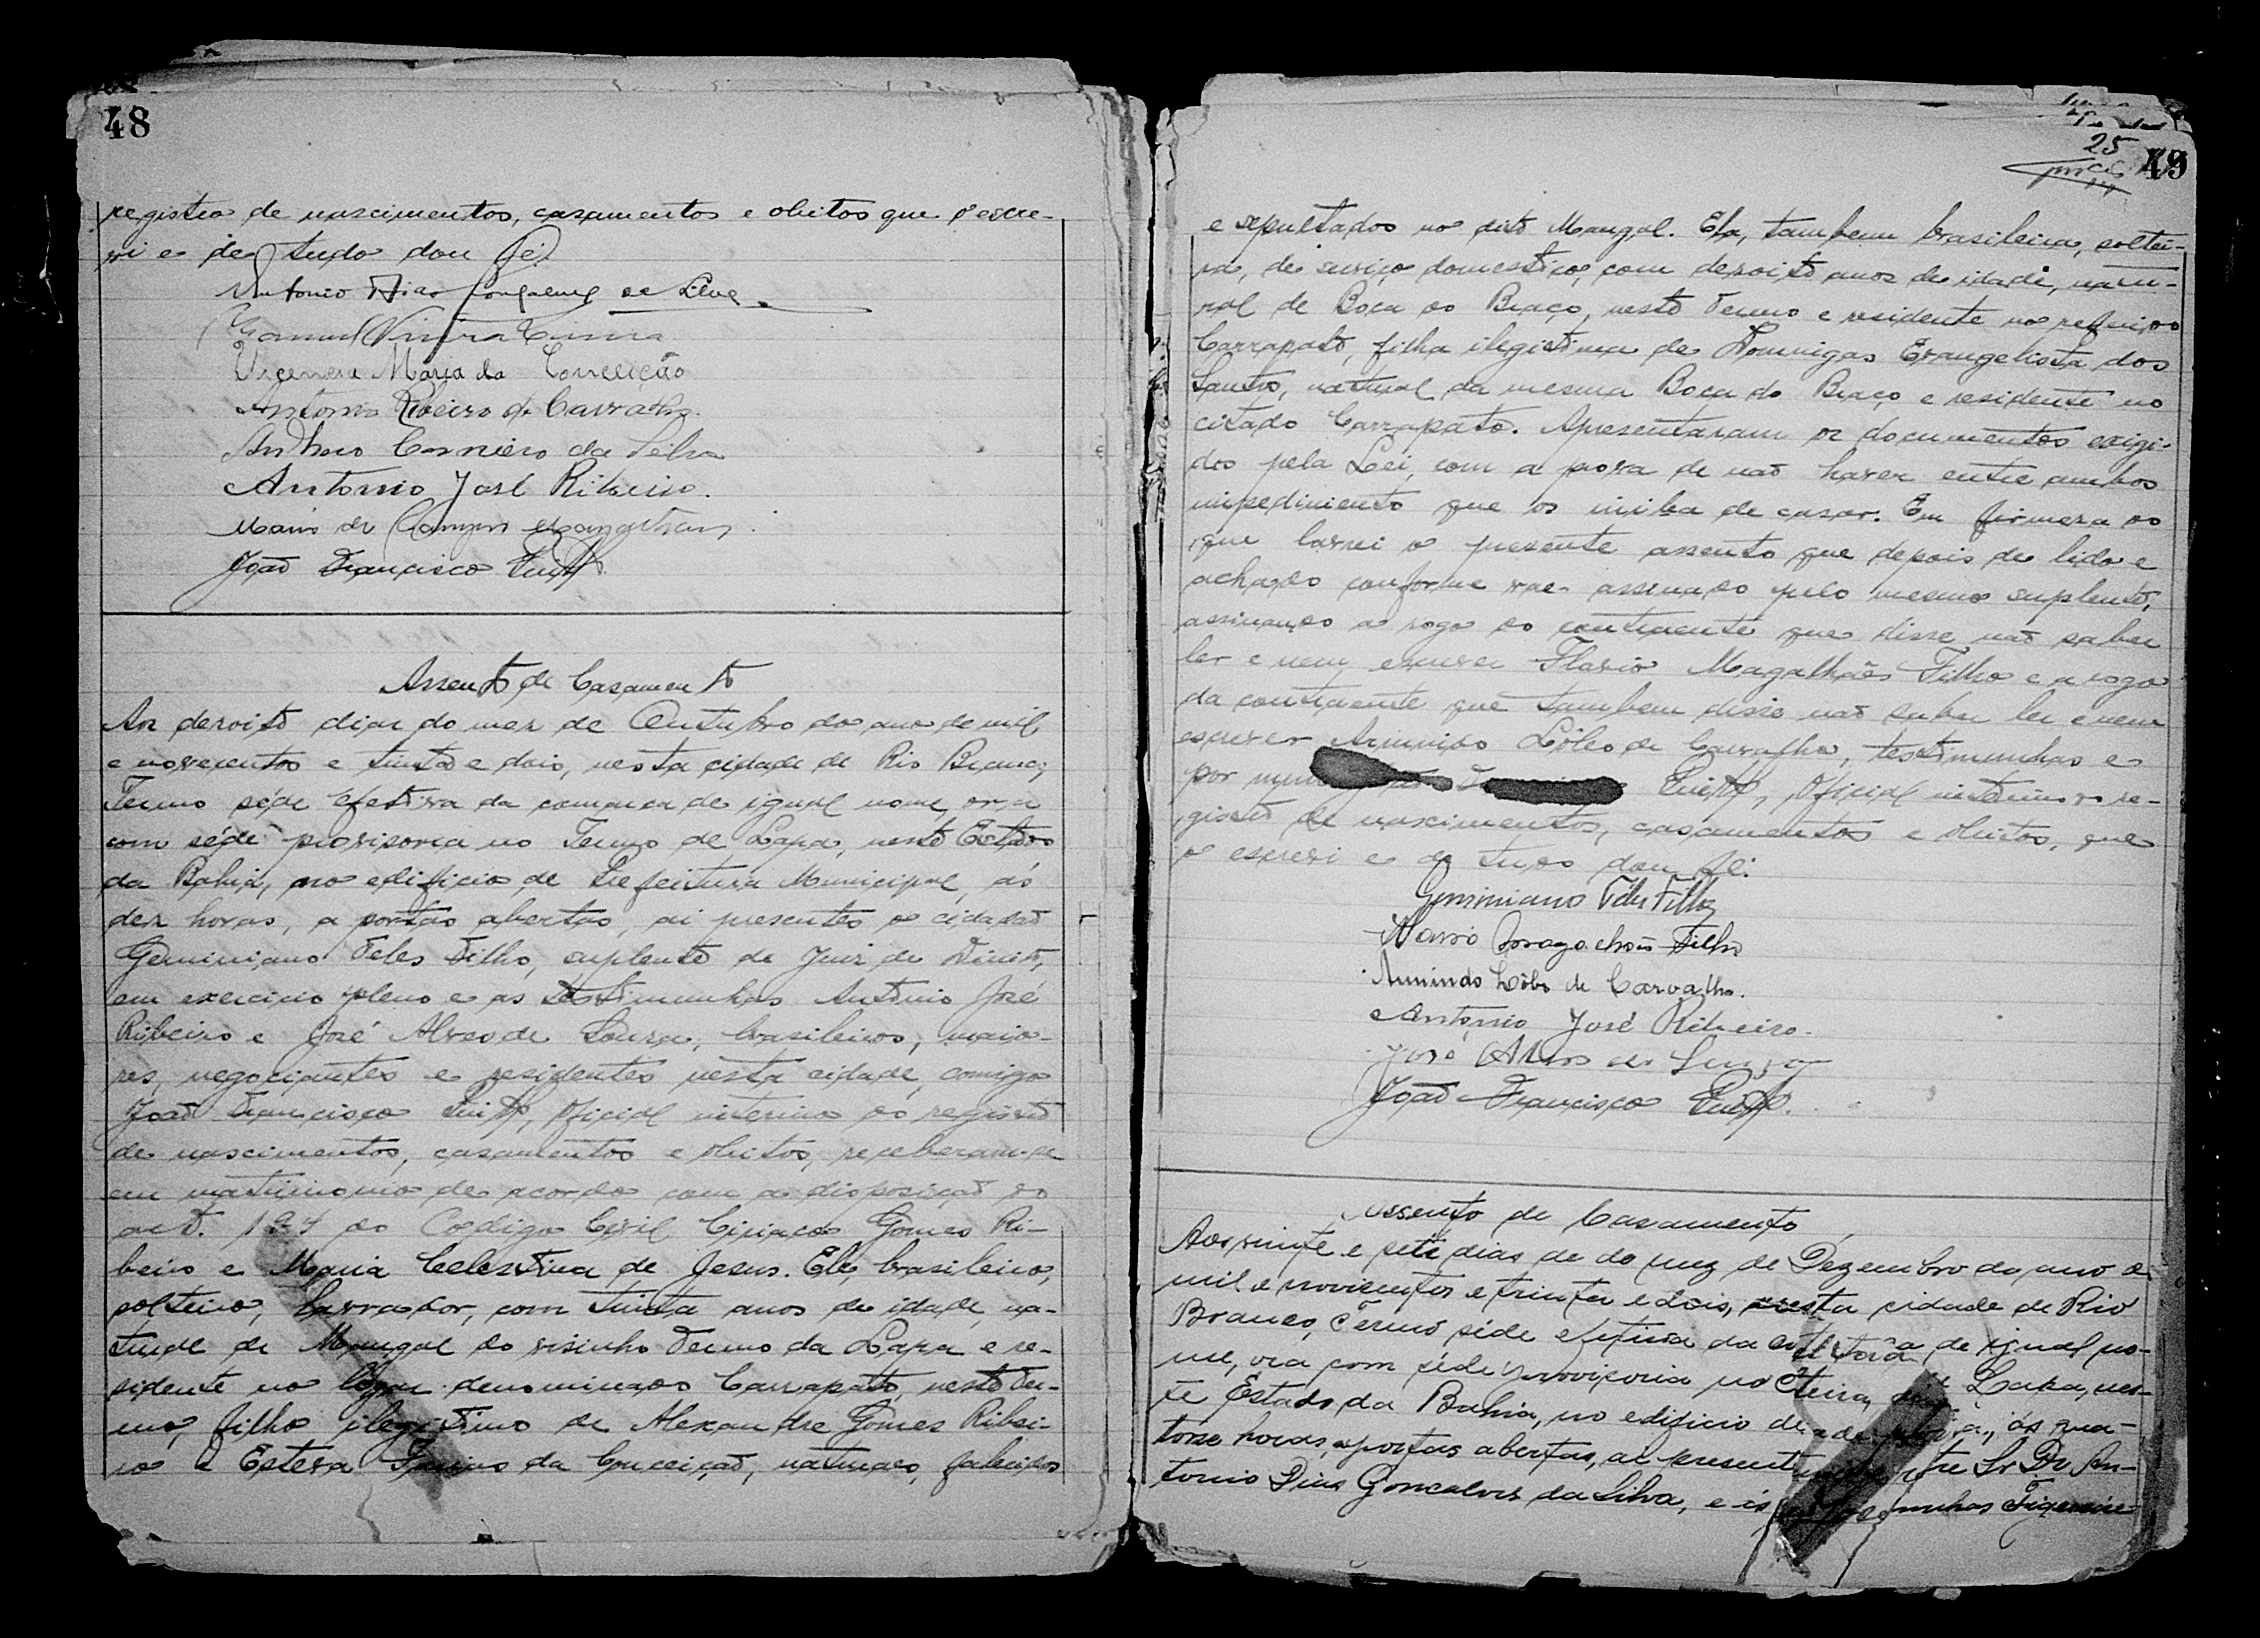 48
registro de nascimentos, casamentos e obitos que o escre-
vi e de tudo dou fé.
Antonio Dias Gonçalves da Silva
Manuel Vieira Lima
Maria da Conceição
Antonio Ribeiro de Carvalho.
Carneiro da Silva
Antonio José Ribeiro.
João Francisco
Assento de Casamento
Aos dezoito dias do mez de Outubro do ano de mil
e novecentos e trinta e dois, nesta cidade de Rio Branco,
Termo séde efetiva da comarca de igual nome, ora
com séde provisoria no Termo de Lapa, neste Estado
da Bahia, no edificio de Prefeitura Municipal, ás
dez horas, a portas abertas, aí presentes o cidadão
Geminiano Teles Filho, suplente de Juiz de Direito,
em exercicio pleno e as testimunhas Antonio José
Ribeiro e José Alves de Souza, brasileiros, maio-
res, negociantes e residentes nesta cidade, comigo
João Francisco , Oficial interino do registo
de nascimentos, casamentos e obitos, receberam-se
em matrimonio de acordo com a disposição do
art. 194 do Codigo Civil Ciriaco Gomes Ri-
beiro e Maria Celestina de Jesus. Ele, brasileiro,
solteiro, lavrador, com trinta anos de idade, na-
tural de Mangal do visinho Termo da Lapa e re-
sidente no logar denominado Carrapato, neste Ter-
mo, filho ilegitimo de Alexandre Gomes Ribei-
ro e Esteva da Conceição, naturaes, falecidos
25
49
e sepultados no dito Mangal. Ela, tambem brasileira, soltei-
ra, de serviço domestico, com dezoito anos de idade, natu-
ral de Boca do Braço, neste Termo e residente no referido
Carrapato, filha ilegitima de Domingas Evangelista dos
Santos, natural da mesma Boca do Braço e residente no
citado Carrapato. Apresentaram os documentos exigi-
dos pela Lei, com a prova de não haver entre ambos
impedimento que os iniba de casar. Em firmeza do
que lavrei o presente assento que depois de lido e
achado conforme vae assinado pelo mesmo suplente,
assinando a rogo do contraente que disse não saber
ler e nem escrever Flavio Magalhães Filho e a rogo
da contraente que tambem disse não saber ler e nem
escrever Arminido Lôbo de Carvalho, testimunhas e
por mim , Oficial interino do re-
gisto de nascimentos, casamentos e obitos, que
o escrevi e de tudo dou fé.
Geminiano Teles Filho
Magalhães Filho
Armindo Lôbo de Carvalho.
Antonio José Ribeiro.
José Alves de Souza
João Francisco
Assento de Casamento
Aos vinte e sete dias de do mez de Dezembro do ano de
mil e novicentos e trinta e dois, nesta cidade de Rio
Branco, Termo, séde efetiva da de igual no-
me, ora com séde provisoria no Lapa, nes-
te Estado da Bahia, no edificio ás qua-
torze horas, a portas abertas, aí Sr Dr An-
tonio Dias Goncalves da Silva, e ás